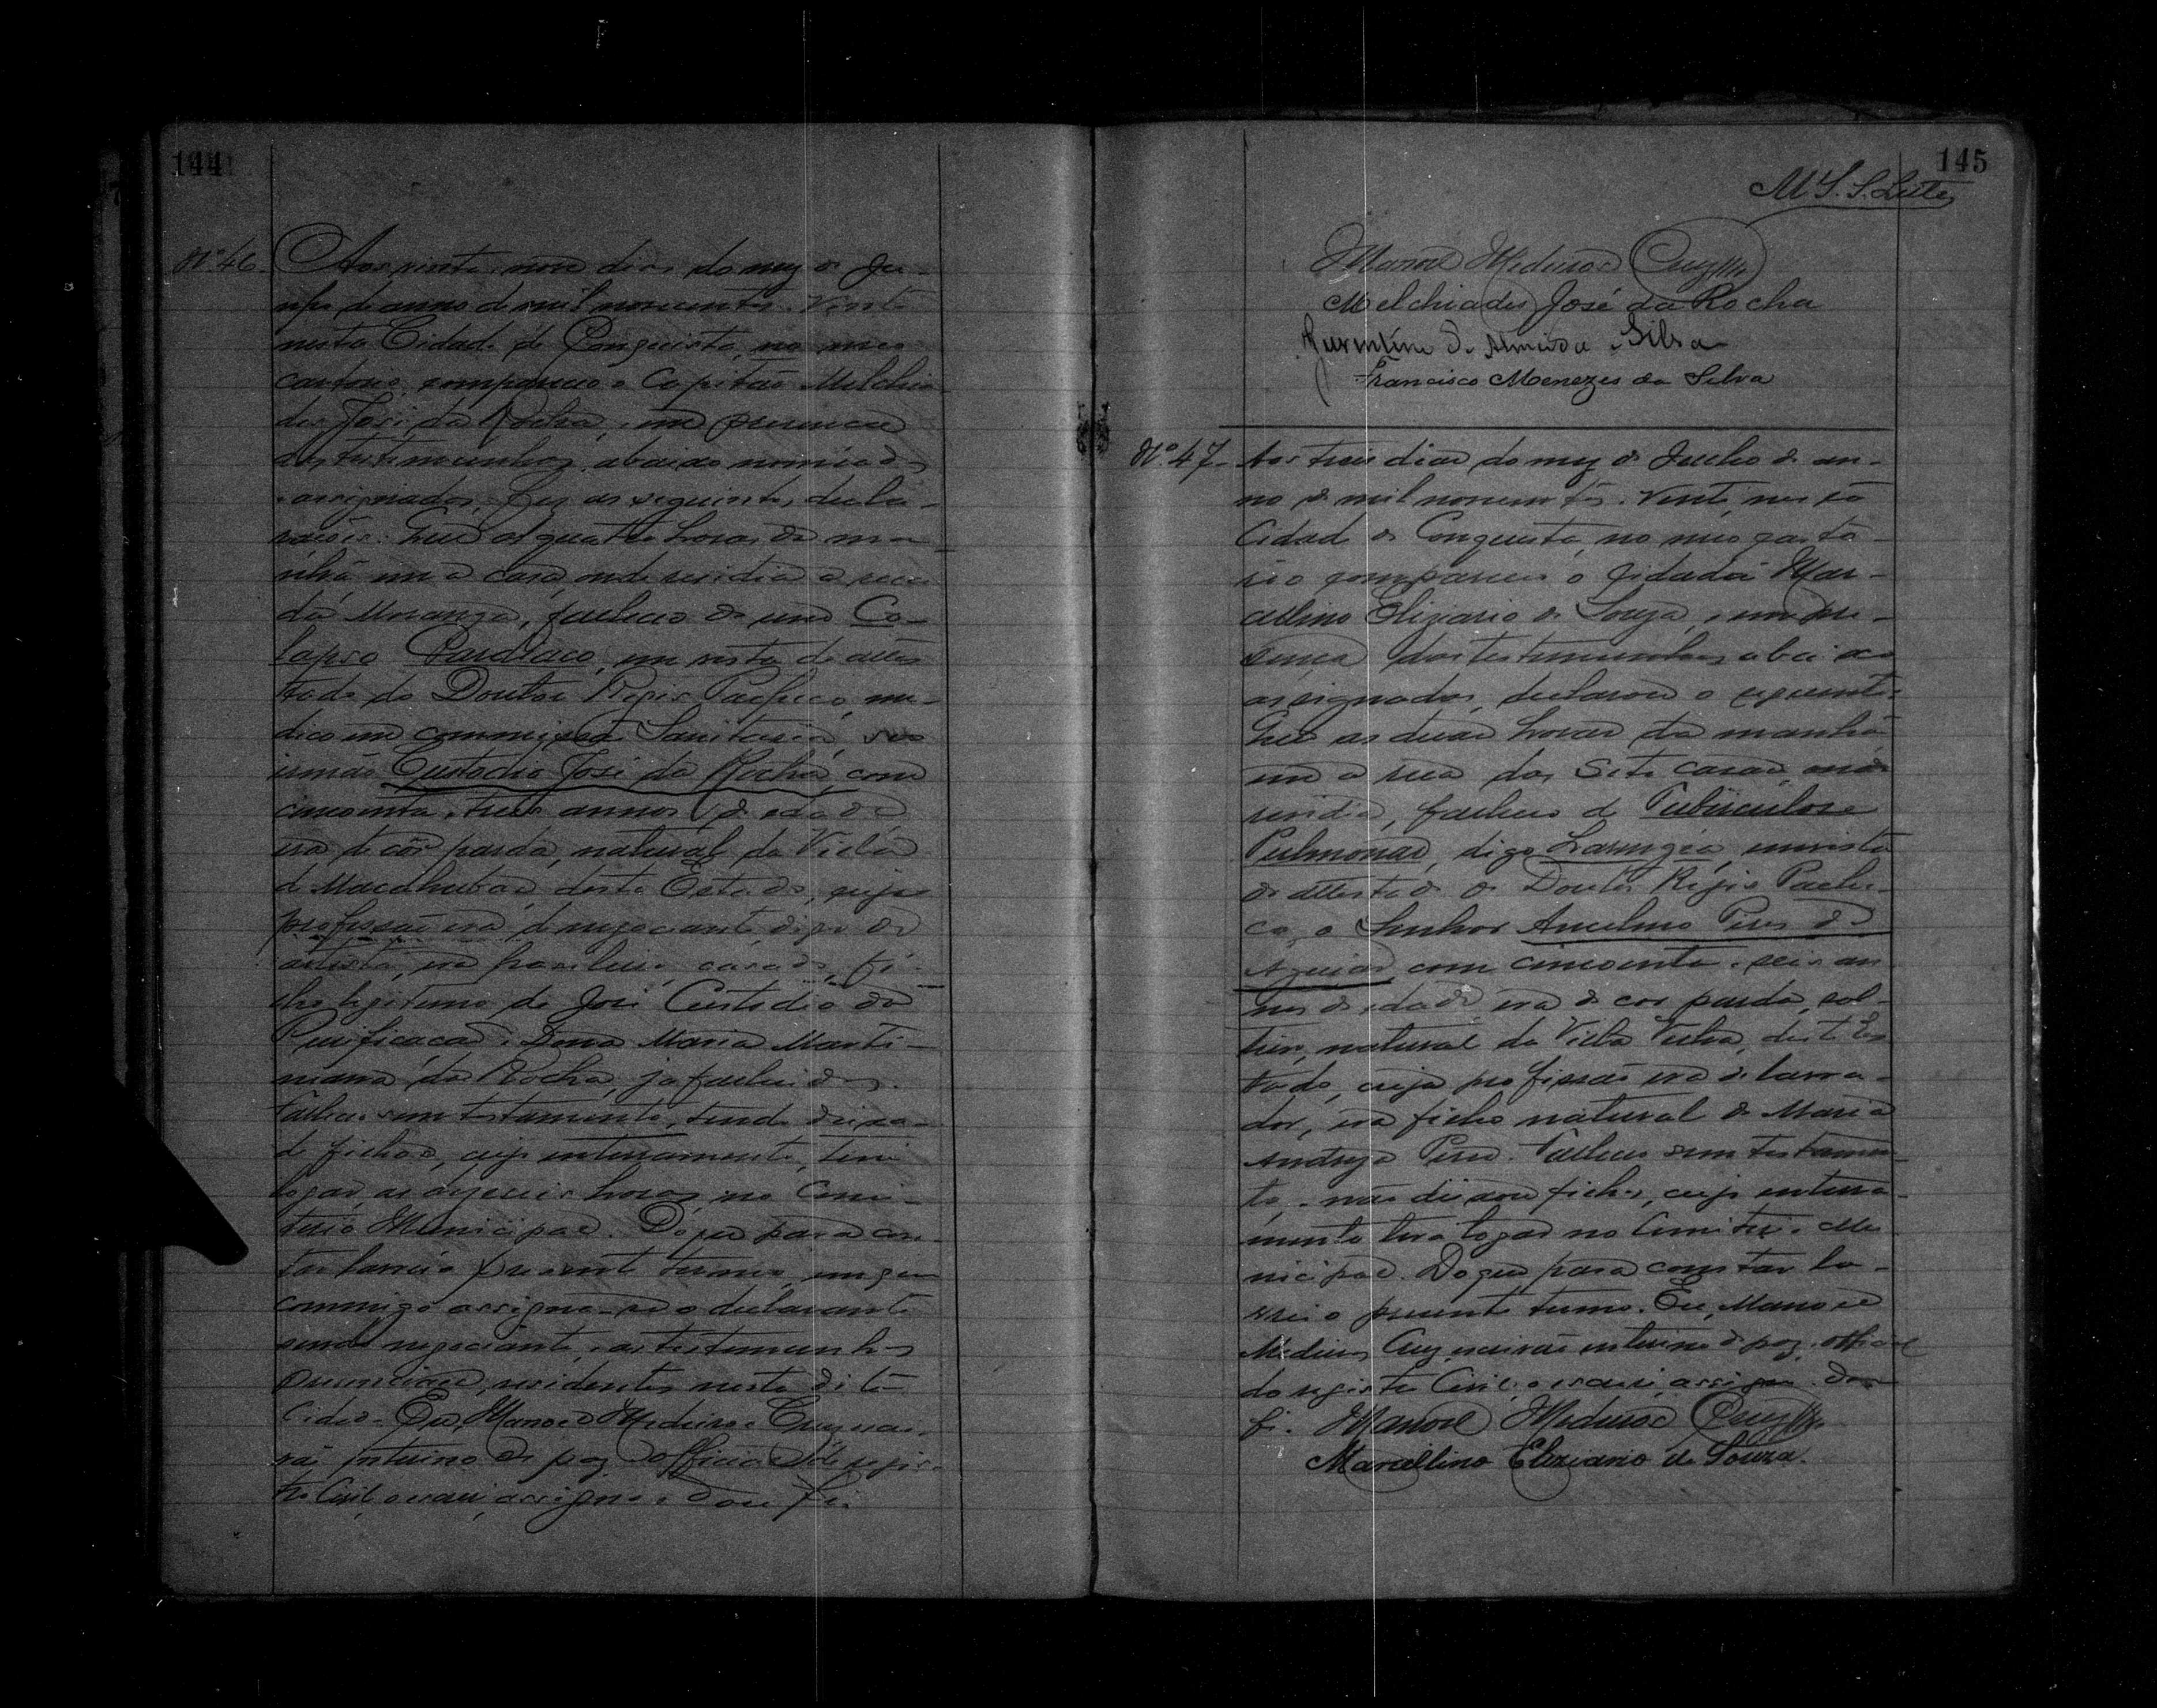 144
Nº 46. Aos vinte nove dias do mez de Ju-
nho do anno de mil novecentos e vinte
nesta Cidade de Conquista, no meo
cartorio, compareceo o Capitão Melchia-
des José da Rocha, em presença
das testimunhas abaixo nomiadas
e assignados, fez as seguintes decla-
rações: Que as quatro horas da ma-
nhã, em a casa, onde residia a rua
da Moranga, falleceo de um Co-
lapso Cardiaco, em vista do attes-
tado do Doutor Regis Pacheco, me-
dico em commissão Sanitaria, seo
irmão Custodio José da Rocha, com
cincoenta e tres annos de edade
era de côr parda, natural da Villa
de Macahubas, deste Estado, cuja
profissão era de negociante, digo de
artista, era brasileiro, casado, fi-
lho legitimo de José Custodio da
Purificação e Dona Maria Marti-
niana da Rocha, ja fallecidos.
Falleceo sem testamento, tendo deixa-
do filhos, cujo enterramento, terá
logar, as dezeseis horas, no Cemi-
terio Municipal. Do que para cons-
tar lavrei o presente termo, em que
commigo assigna-se o declarante
sendo negociante, e as testemunhas
residentes nesta dita
Cidade. Eu, Manoel Medeiros Cruz, escri-
vão interino de paz e official do regis-
tro Civil, o escrevi, assigno e dou fé.
145
M S. S. Leite
Manoel Medeiros Cruz
Melchiades José da Rocha
Juventino de Almeida e Silva
Francisco Menezes da Silva
Nº 47. Aos tres dias do mez de Julho do an-
no de mil novecentos e vinte, nesta
Cidade de Conquista, no meo carto-
rio compareceu o cidadão Mar-
cellino Eliziario de Souza, e em pre-
sença das testemunhas abaixo
assignados, declarou o seguinte:
Que as duas horas da manhã
em a rua das Sete casas, onde
residia, falleceu de Tuberculose
Pulmonar, digo Laringéa, em vista
do attestado do Doutor Regis Pache-
co, o Senhor Ancelmo Pires de
Aguiar, com cincoenta e seis an-
nos de edade, era de cor parda, sol-
teiro, natural da Villa Velha, deste Es-
tado, cuja profissão era de lavra-
dor, era filho natural de Maria
Andreza Pires. Falleceo sem testamen-
to, e não deixou filhos, cujo enterra-
mento terá logar no Cemiterio Mu-
nicipal. Do que para constar la-
vrei o presente termo. Eu, Manoel
Medeiros Cruz, escrivão interino de paz e official
do registro Civil, o escrevi, assigno e dou
fé. Manoel Medeiros Cruz
Marcellino Eleziario de Souza.